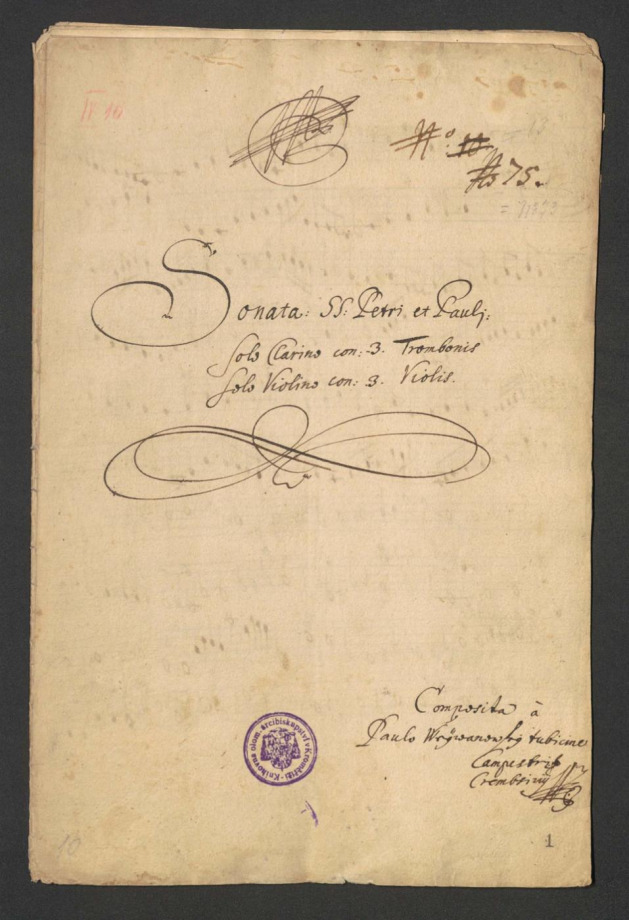 IV 16
N.º 10
No 75.
Sonata: SS: Petri et Paulj:
Solo Clarino con: 3. Trombonis
Solo Violino con: 3. Violis.
Composita à
Paulo Weÿwanowskÿ tubicine
Campestri
Crembsirij
Knihovna olom. arcibiskupství v Kroměříži
10
1